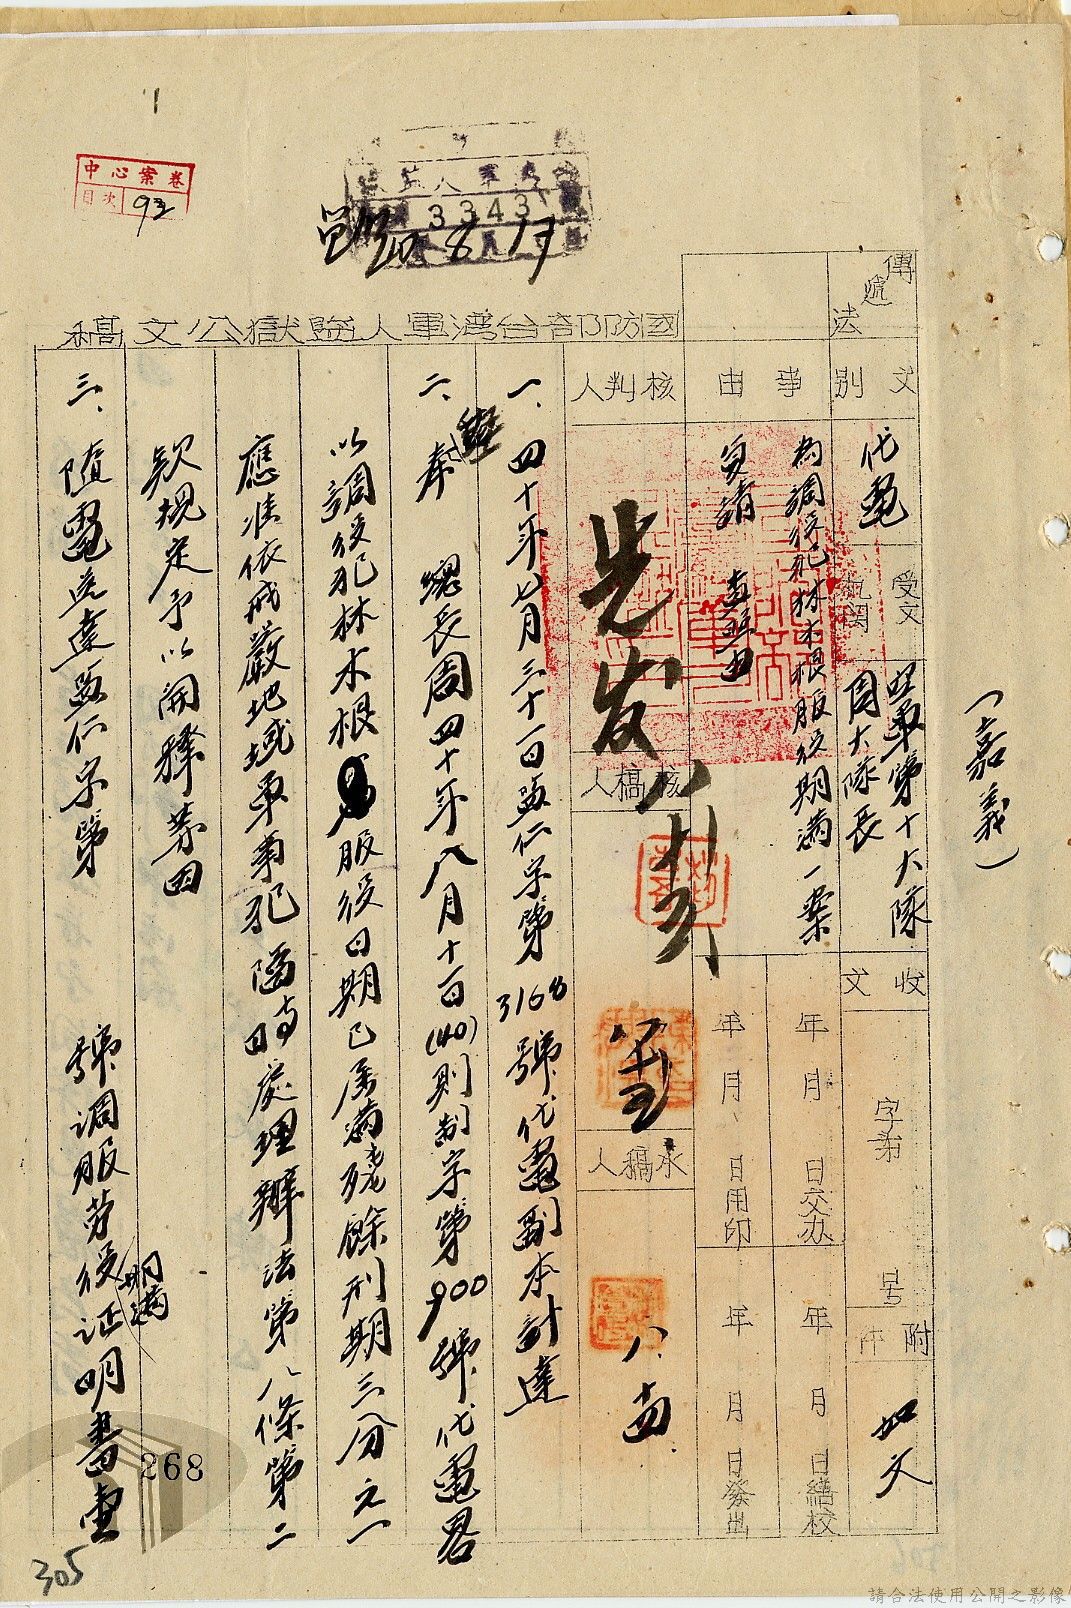 中心案卷
目次 93
3343
40 8 17
國防部台灣軍人監獄公文稿
(嘉義)
傳遞法
文別
代電
受文机関
空軍第十大隊
周大隊長
收文
字第
号
附件
如文
事由
為調役犯林木根服役期滿一案
復請 查照由
年月日交办
年月日繕校
年月日用印
年月日發出
核判人
先發
核稿人
承稿人
一、四十年七月三十一日孟仁字第3168號代電副本計達
二、奉 總長周四十年八月十一日(40)則制字第900號代電畧
以調役犯林木根服役日期已届滿殘餘刑期三分之一
應准依戒嚴地域軍事犯臨時處理辦法第八條第二
款規定予以開釋等因
三、隨電送達孟仁字第 號調服劳役期滿証明書壹
268
305
請合法使用公開之影像